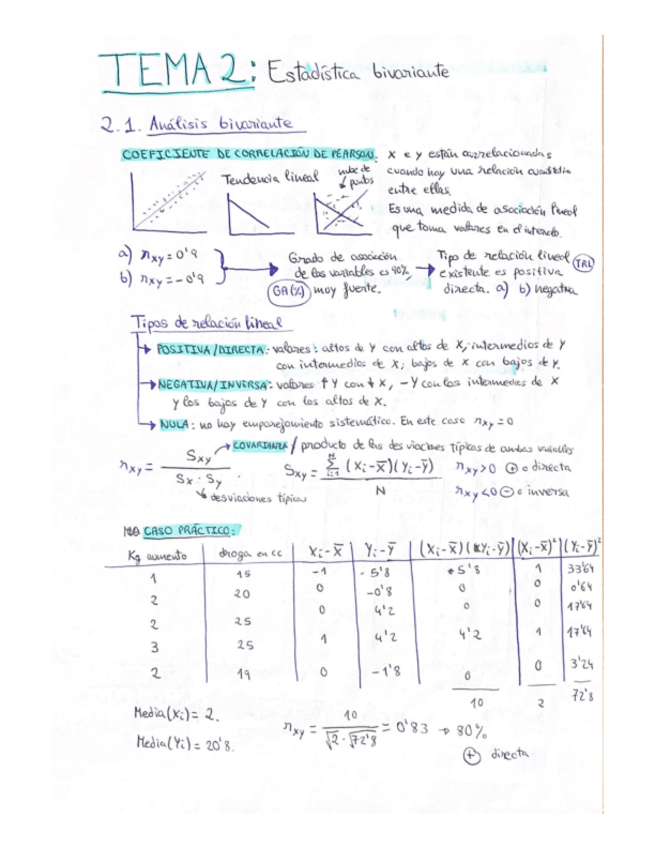 TEMA 2: Estadística bivariante
2.1. Análisis bivariante
COEFICIENTE DE CORRELACIÓN DE PEARSON. X e y están correlacionadas
cuando hay una relación
entre ellas.
Es una medida de asociación lineal
que toma valores en el intervalo.
Tendencia lineal
nube de
puntos
a) rxy = 0'9
b) rxy = -0'9
Grado de asociación
de las variables es 90%
GA(%) muy fuerte.
Tipo de relación lineal TRL
existente es positiva
directa. a) b) negativa
Tipos de relación lineal
POSITIVA/DIRECTA: valores: altos de Y con altos de X, intermedios de Y
con intermedios de X; bajos de X con bajos de y.
NEGATIVA/INVERSA: valores ↑ Y con ↓ X, - Y con los intermedios de X
y los bajos de Y con los altos de X.
NULA: no hay emparejamiento sistemático. En este caso rxy = 0
COVARIANZA / producto de las desviaciones típicas de ambas variables
rxy = Sxy / Sx · Sy
desviaciones típicas
Sxy = Σ i=1 (Xi - X̄)(Yi - Ȳ) / N
rxy > 0 ⊕ o directa
rxy < 0 ⊖ o inversa
CASO PRÁCTICO:
Kg aumento droga en cc Xi - X̄ Yi - Ȳ (Xi - X̄)(Yi - Ȳ) (Xi - X̄)² (Yi - Ȳ)²
1 15 -1 -5'8 +5'8 1 33'64
2 20 0 -0'8 0 0 0'64
2 25 0 4'2 0 0 17'64
3 25 1 4'2 4'2 1 17'64
2 19 0 -1'8 0 0 3'24
10 2 72'8
Media (Xi) = 2.
Media (Yi) = 20'8.
rxy = 10 / √2 · √72'8 = 0'83 → 80%
⊕ directa